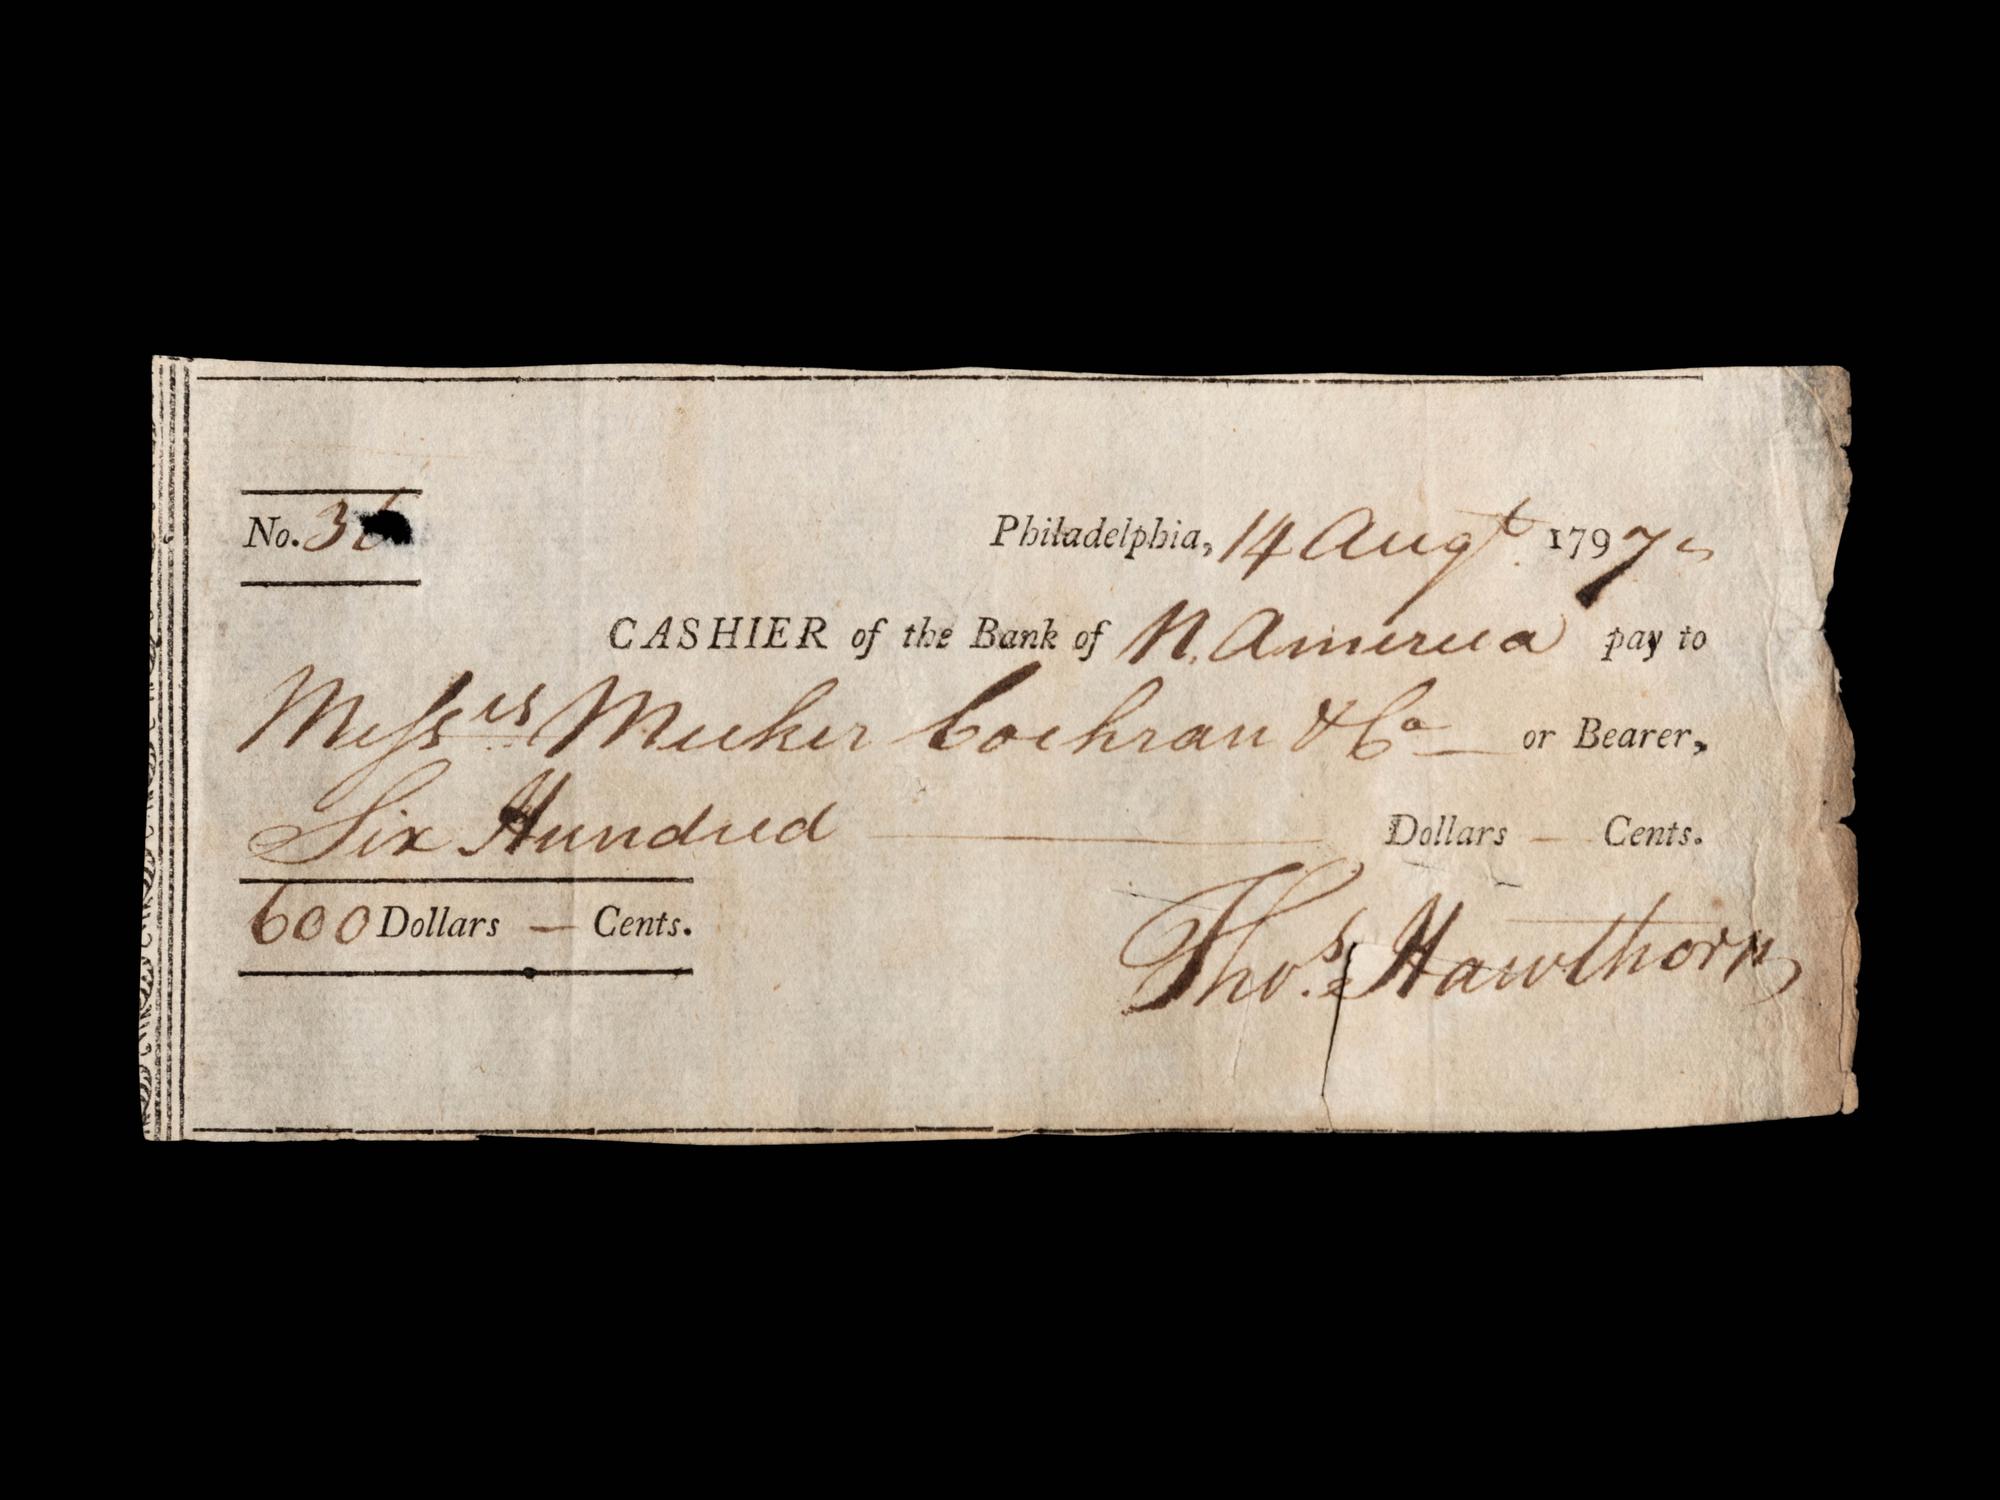 No. 36
Philadelphia, 14 Augt. 1797
CASHIER of the Bank of N. America pay to
Messrs Meeker Cochran & Co or Bearer,
Six Hundred — Dollars — Cents.
600 Dollars — Cents.
Thos. Hawthorn